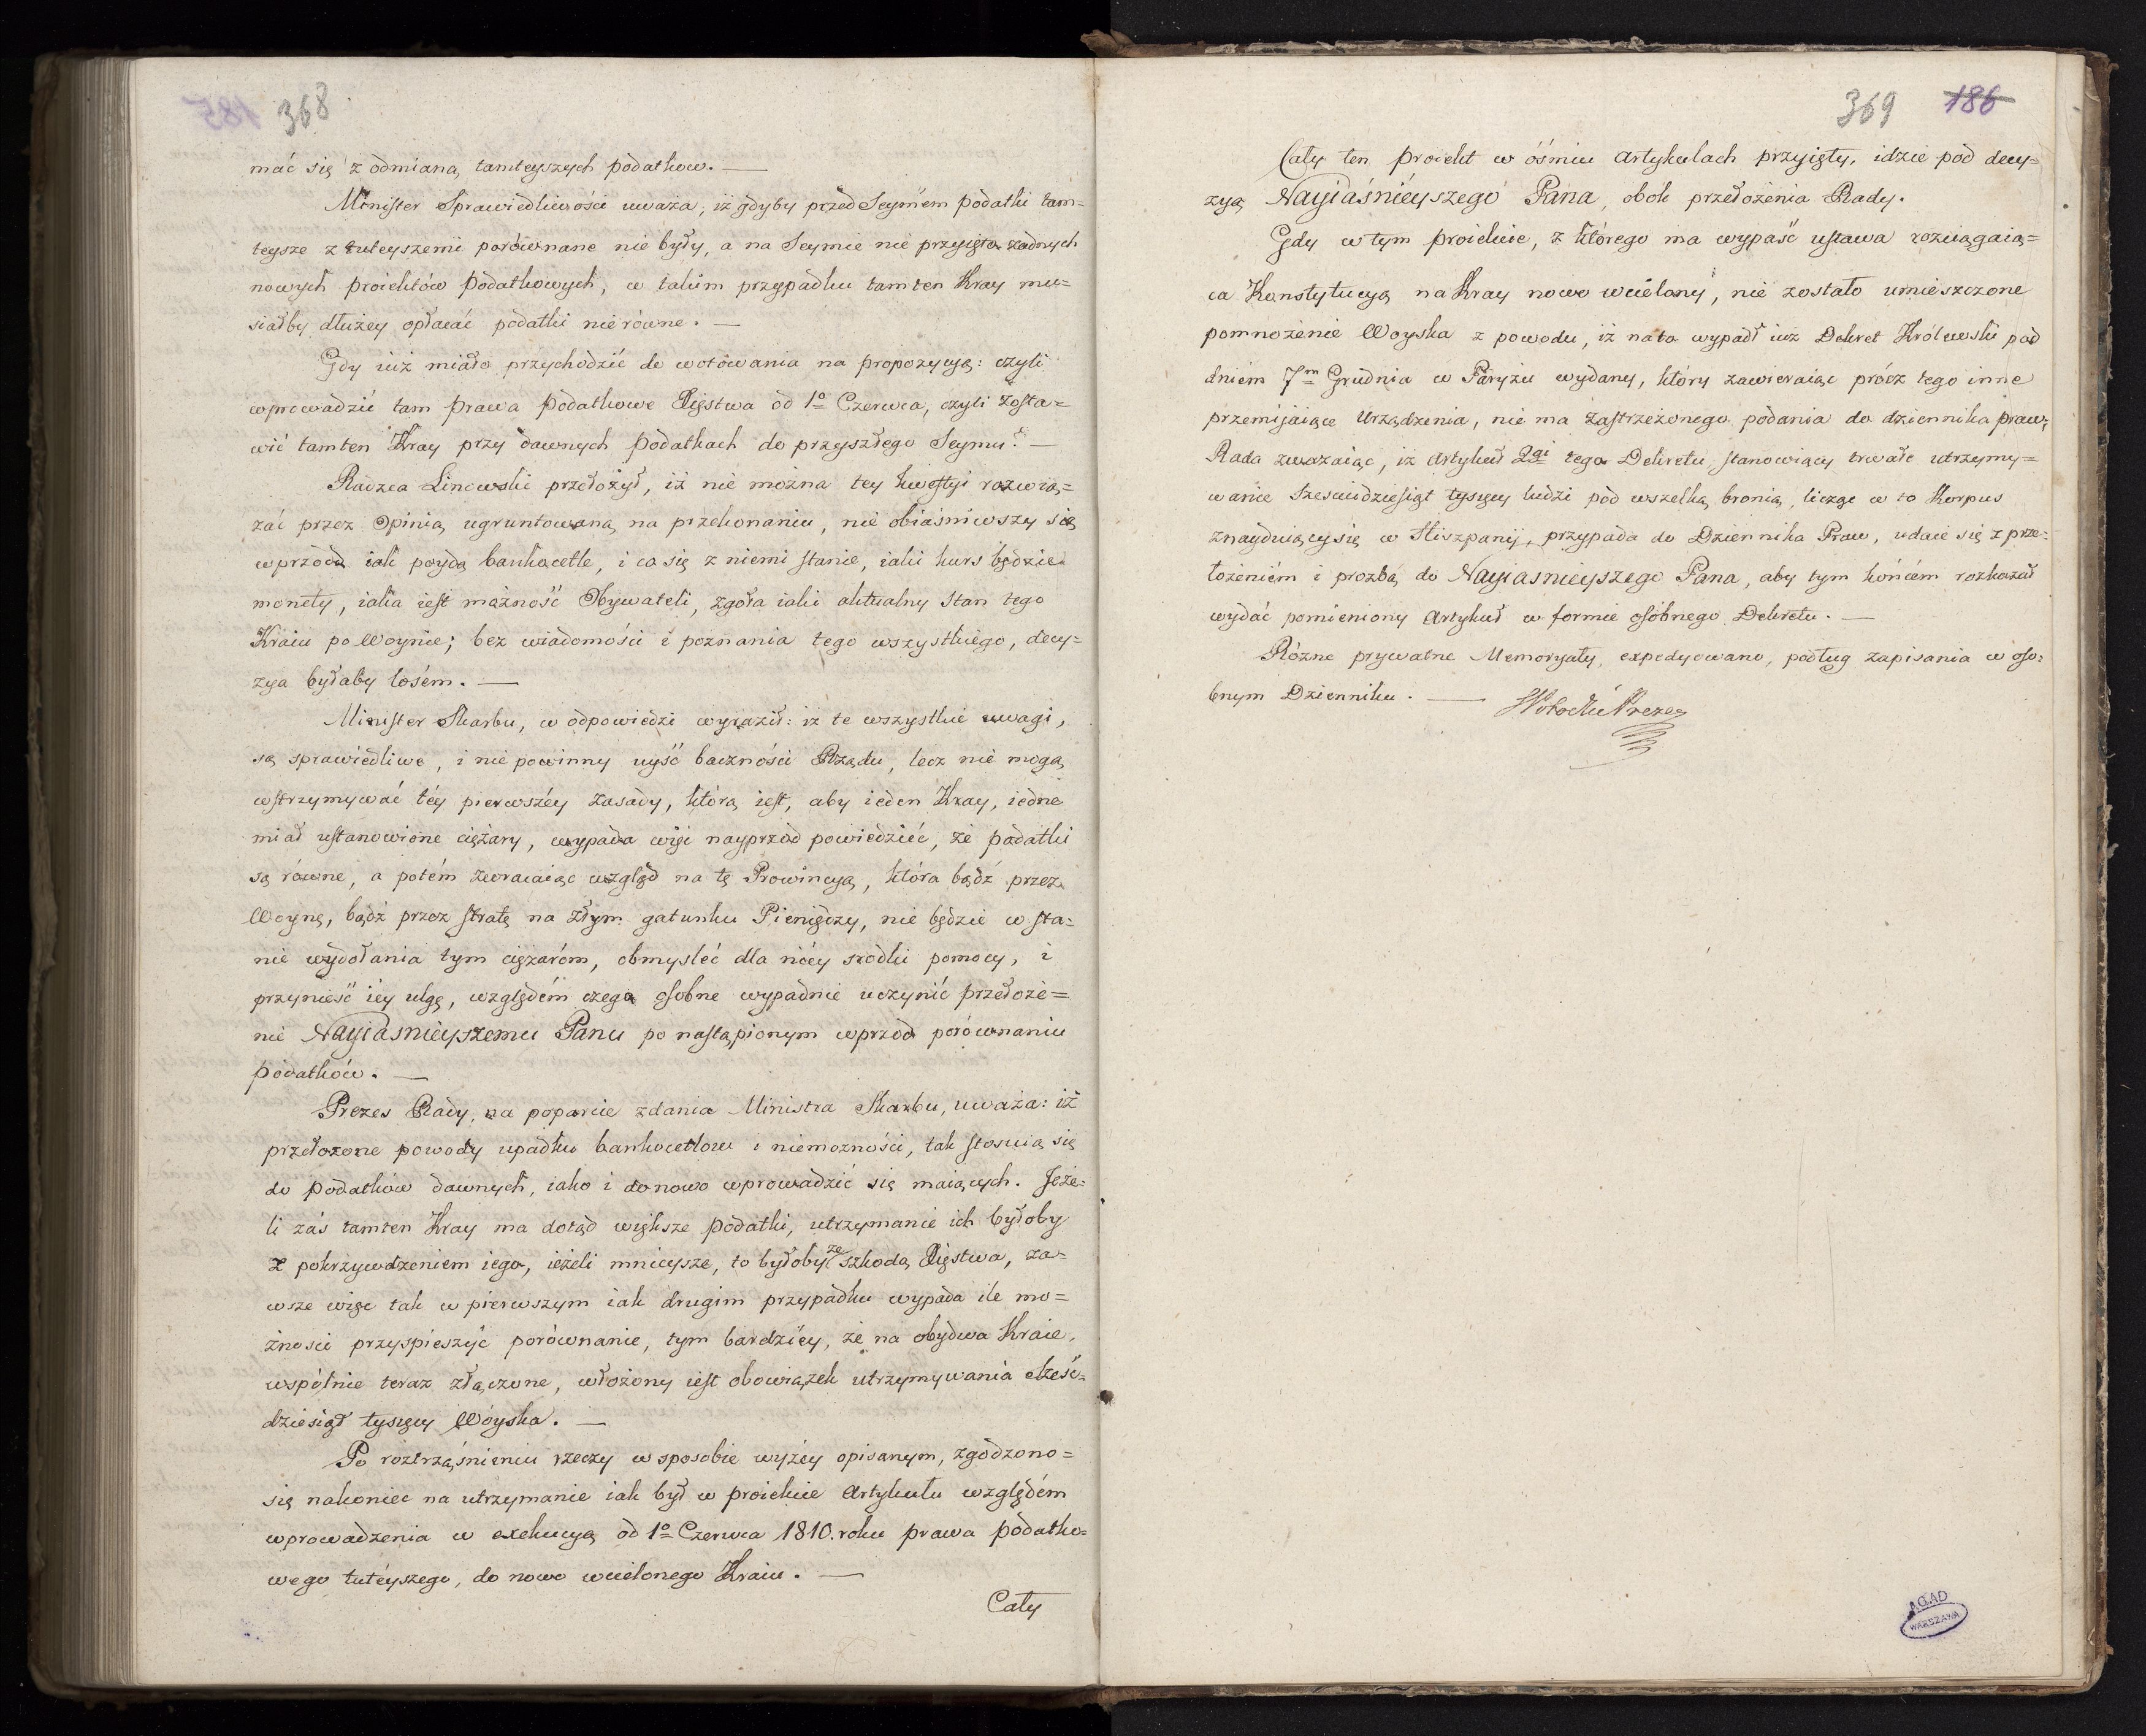 368
mać się z odmianą tamteyszych podatkow. —
Minister Sprawiedliwości uważa, iż gdyby przed Seymem podatki tam=
teysze z tuteyszemi porównane nie były, a na Seymie nie przyięto żadnych
nowych proiektów podatkowych, w takim przypadku tamten Kray mu=
siałby dłużey opłacać podatki nie równe. —
Gdy iuż miało przychodzić do wotowania na propozycyą: czyli
wprowadzić tam prawa podatkowe Xięstwa od 1º Czerwca, czyli zosta=
wić tamten Kray przy dawnych podatkach do przyszłego Seymu? —
Radzca Linowski przełożył, iż nie można tey kwestyi rozwią=
zać przez Opinią ugruntowaną na przekonaniu, nie obiaśniwszy się
wprzód iak poydą bankocetle, i co się z niemi stanie, iaki kurs będzie
monety, iaka iest możność Obywateli, zgoła iaki aktualny stan tego
Kraiu po Woynie; bez wiadomości i poznania tego wszystkiego, decy=
zya byłaby losem. —
Minister Skarbu, w odpowiedzi wyraził: iż te wszystkie uwagi,
są sprawiedliwe, i nie powinny uyść baczności Rządu, lecz nie mogą
wstrzymywać téy pierwszéy zasady, którą iest, aby ieden Kray, iedne
miał ustanowione ciężary, wypada więc nayprzód powiedzieć, że podatki
są równe, a potém zwracaiąc wzgląd na tę Prowincyą, która bądź przez
Woynę, bądź przez stratę na złym gatunku Pieniędzy, nie będzie w sta=
nie wydołania tym ciężaróm, obmyśleć dla niéy srodki pomocy, i
przynieść iey ulgę, względém czego osobne wypadnie uczynić przełoże=
nie Nayiasnieyszemu Panu po nastąpionym wprzód porównaniu
podatków. —
Prezes Rady, na poparcie zdania Ministra Skarbu, uważa: iż
przełożone powody upadku bankocetlow i niemożności, tak stosuią się
do podatków dawnych, iako i do nowo wprowadzić się maiących. Jeże=
li zaś tamten Kray ma dotąd większe podatki, utrzymanie ich byłoby
z pokrzywdzeniem iego, ieżeli mnieysze, to byłoby ze szkodą Xięstwa, za=
wsze więc tak w pierwszym iak drugim przypadku wypada ile mo=
żności przyspieszyć porównanie, tym bardziey, że na obydwa Kraie,
wspólnie teraz złączone, włożony iest obowiązek utrzymywania sześć=
dziesiąt tysięcy Woyska. —
Po roztrząśnieniu rzeczy w sposobie wyżéy opisanym, zgodzono=
się nakoniec na utrzymanie iak był w proiekcie Artykułu względém
wprowadzenia w exekucyą od 1º Czerwca 1810. roku prawa podatko=
wego tutéyszego, do nowo wcielonego Kraiu. —
Cały
369 186
Cały ten proiekt w ośmiu artykułach przyięty, idzie pod decy=
zyą Nayiaśniéyszego Pana, obok przełożenia Rady.
Gdy w tym proiekcie, z którego ma wypaść ustawa rozciągaią=
ca Konstytucyą na Kray nowo wcielony, nie zostało umieszczone
pomnożenie Woyska z powodu, iż na to wypadł iuż Dekret Królewski pod
dniem 7m Grudnia w Paryżu wydany, który zawieraiąc prócz tego inne
przemijaiące Urządzenia, nie ma zastrzeżonego podania do dziennika praw;
Rada zważaiąc, iż artykuł 2gi tego Dekretu, stanowiący trwałe utrzymy=
wanie sześćdziesiąt tysięcy ludzi pod wszelką bronią, licząc w to Korpus
znayduiący się w Hiszpanij, przypada do Dziennika Praw, udaie się z prze=
łożeniém i prozbą do Nayiasnieyszego Pana, aby tym końcém rozkazał
wydać pomieniony Artykuł w formie osobnego Dekretu. —
Różne prywatne Memoryały, expedyowano, podług zapisania w oso=
bnym Dzienniku. —
AGAD
WARSZAWA